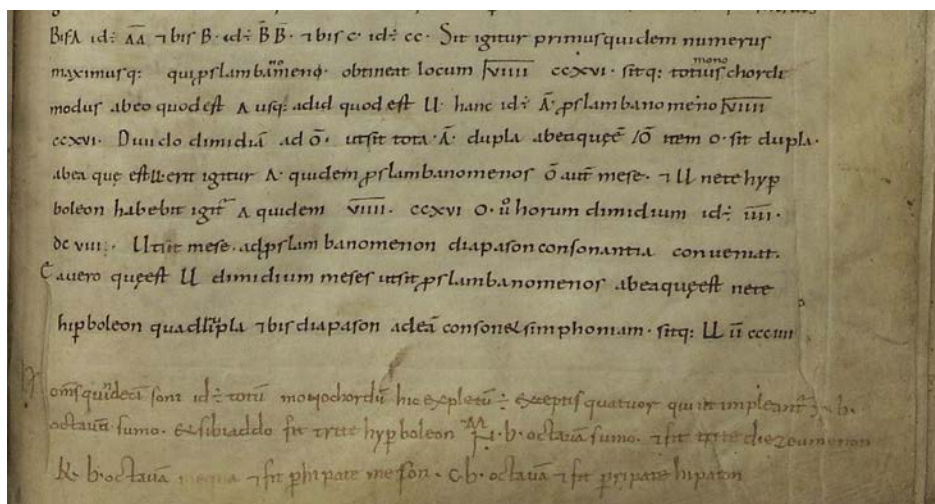 BisA id÷ AA ⁊ bis B· id÷ B̄ B̄· ⁊ bis c· id÷ cc· Sit igitur primus quidem numerus
maximusq: qui ꝓslambanomenꝰ· obtineat locum V̅I̅I̅I̅I̅ ccxvi· sitq: totius monochordi
modus ab eo quod est A usq: ad id quod est LL· hanc id÷ Ā· ꝓslambanomeno V̅I̅I̅I̅I̅
ccxvi· Divido dimidiā ad ō· ut sit tota ·Ā· dupla ab ea quę ē /O item o· sit dupla·
ab ea quę est LL· erit igitur A· quidem ꝓslambanomenos ō aut̄ mese· ⁊ LL nete hyp
boleon habebit igit̄ A quidem v̄īīīī· ccxvi O· ů horum dimidium id÷ īīīī·
dc viii· Ut sit mese· ad ꝓslambanomenon diapason consonantia conveniat·
Ea vero quę est LL dimidium meses ut sit ꝓslambanomenos ab ea quę est nete
hiꝑboleon quadrupla ⁊ bis diapason ad eā consonet simphoniam· sitq: LL īī ccciiii
oms quindeci soni id÷ totū monochordū hic expletū ÷ exceptis quatuor qui it impleant᷑ b·
octavā sumo· & sibi addo fit trite hyꝑboleon b· octavā sumo· ⁊ fit trite diezeumenon
b· octavā ⁊ fit ꝑhipate meson· C b· octavā ⁊ fit ꝑripate hipaton